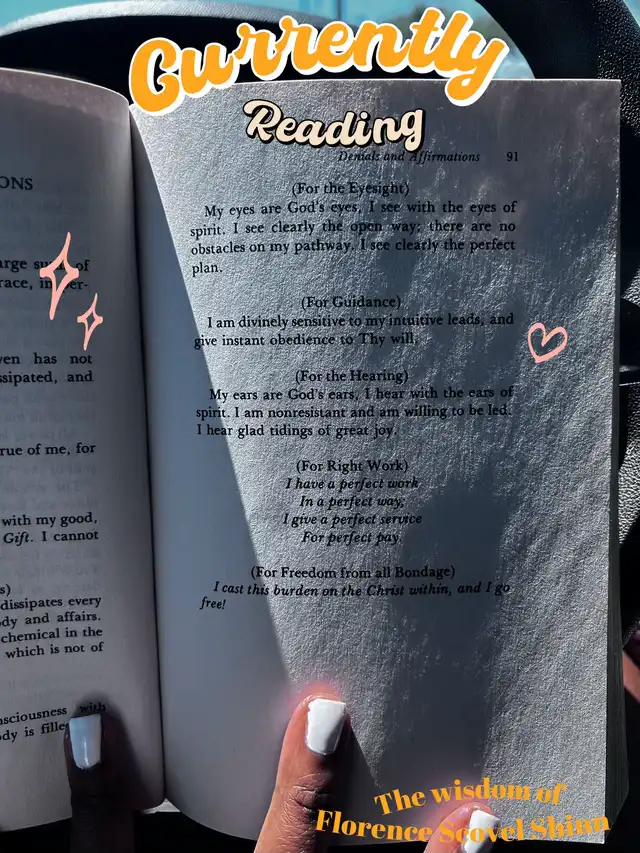 Currently
Reading
Denials and Affirmations 91
(For the Eyesight)
My eyes are God's eyes, I see with the eyes of
spirit. I see clearly the open way; there are no
obstacles on my pathway. I see clearly the perfect
plan.
(For Guidance)
I am divinely sensitive to my intuitive leads, and
give instant obedience to Thy will.
(For the Hearing)
My ears are God's ears, I hear with the ears of
spirit. I am nonresistant and am willing to be led.
I hear glad tidings of great joy.
(For Right Work)
I have a perfect work
In a perfect way;
I give a perfect service
For perfect pay.
(For Freedom from all Bondage)
I cast this burden on the Christ within, and I go
free!
ONS
arge sum of
race, in per-
ven has not
ssipated, and
rue of me, for
with my good,
Gift. I cannot
s)
dissipates every
dy and affairs.
chemical in the
which is not of
nsciousness with
dy is fille
The wisdom of
Florence Scovel Shinn